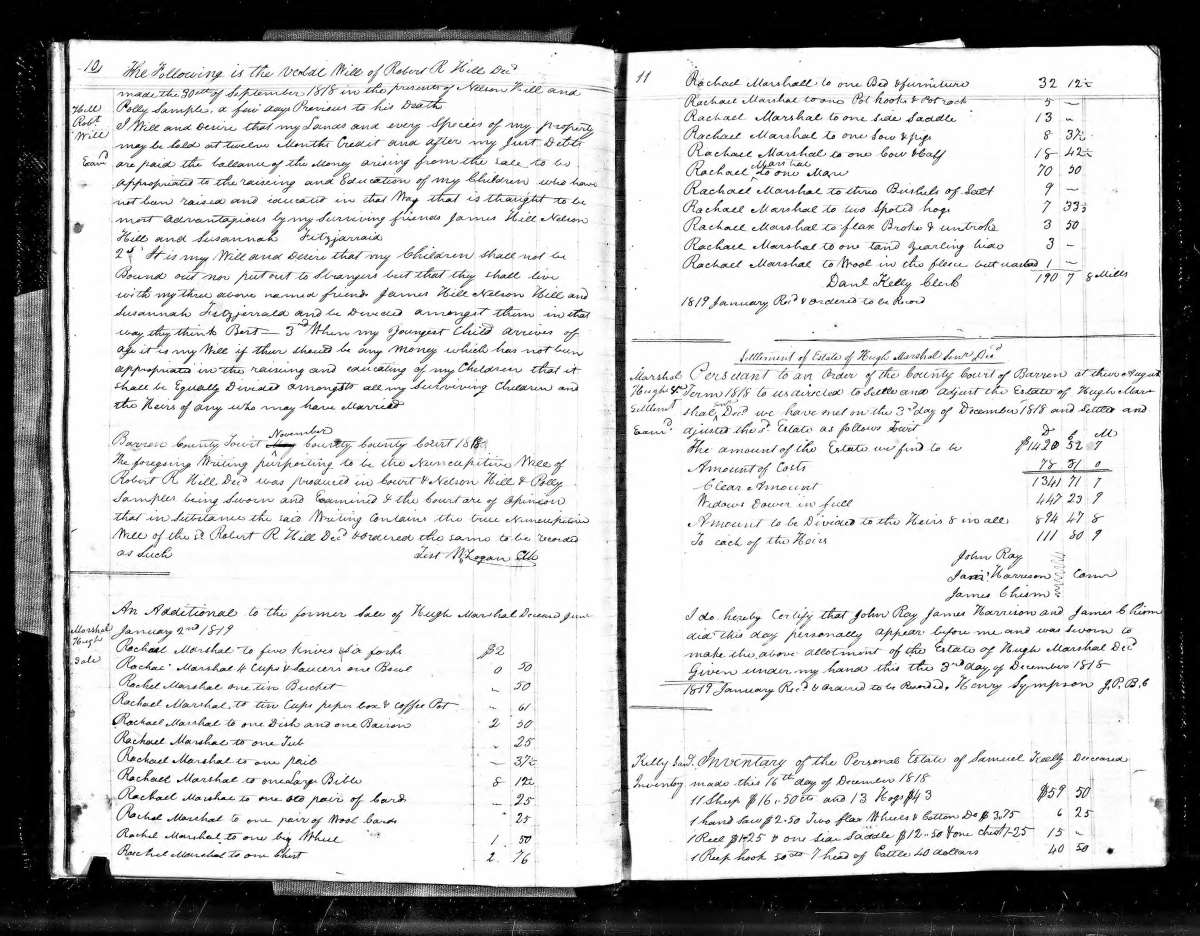 10
The Following is the verbal Will of Robert R Hill Decd
made the 30th of September 1818 in the presents of Nelson Hill and
Polly Sample, a few days Previous to his Death
Hill
Robt
Will
Examd
I Will and desire that my Lands and every Species of my property
may be Sold at twelve Months Credit and after my Just Debts
are paid the ballance of the Money arising from the sale to be
appropriated to the raising and Education of my Children who have
not ben raised and educated in that Way that is thought to be
most advantagious by my Surviving friends James Hill Nelson
Hill and Susannah Fitzjarrald
2d It is my Will and Desire that my Children shall not be
Bound out nor put out to Strangers but that they shall live
with my three above named friends James Hill Nelson Hill and
Susannah Fitzjerrald and be Devided amongst them in that
way they think Best — 3rd When my Youngest Child arrives of
age it is my Will if their should be any Money which has not ben
appropriated in the raising and educating of my Children that it
shall be Equally Divided amongst all my surviving Children and
the Heirs of any who may have Married
Barren County Towit November County County Court 1818
The foregoing Writing purporting to be the Nuncupitive Will of
Robert R Hill Decd was produced in Court & Nelson Hill & Polly
Samples being sworn and Examined & the Court are of Opinion
that in Substance the said Writing Contains the true Nuncupitive
Will of the sd Robert R Hill Decd & ordered the same to be recorded
as Such Test W Logan Clk
An Additional to the former Sale of Hugh Marshal Deceased
January 2nd 1819
Marshal
Hugh
Sale
Rachael Marshal to five knives & six forks $2
Rachael Marshal 4 Cups & Saucers one Bowl 0 50
Rachel Marshal one tin Bucket - 50
Rachael Marshal to tin Cups peper box & coffee Pot - 61
Rachael Marshal to one Dish and one Bason 2 50
Rachael Marshal to one Tub - 25
Rachael Marshal to one pail - 37½
Rachael Marshal to one Large Bible 8 12½
Rachael Marshal to one old pair of Cards - 25
Rachel Marshal to one pair of Wool Cards 25
Rachel Marshal to one big Wheel 1 50
Rachel Marshal to one Chest 2 76
11
Rachael Marshall to one Bed & furniture 32 12½
Rachael Marshal to one Pot hooks & Pot rack 5 -
Rachael Marshal to one side Saddle 13 -
Rachael Marshal to one Sow & pigs 8 37½
Rachael Marshal to one Cow & Calf 18 42½
Rachael Marshal to one Mare 70 50
Rachael Marshal to three Bushels of Salt 9 -
Rachael Marshal to two Spoted hogs 7 33⅓
Rachael Marshal to flax Broke & unbroke 3 50
Rachael Marshal to one tand yearling hide 3 -
Rachael Marshal to Wool in the fleece but washed 1 -
Danl Kelly Clerk 190 7 8 Mills
1819 January Recd & ordered to be Record
Settlement of Estate of Hugh Marshal Senr Decd
Marshal
Hugh Sr
Settlemt
Examd
Persuant to an Order of the County Court of Barren at their August
Term 1818 to us directed to Settle and adjust the Estate of Hugh Mar
shal Senr Decd we have met on the 3rd day of December 1818 and Settled and
adjusted the sd Estate as follows Towit
D C M
The amount of the Estate we find to be $1420 52 7
Amount of Costs 78 81 0
Clear Amount 1341 71 7
Widows Dower in full 447 23 9
Amount to be Divided to the Heirs 8 in all 894 47 8
To each of the Heirs 111 80 9
John Ray
Jas Harrison Comr
James Chism
I do hereby Certify that John Ray James Harrison and James Chism
did this day personally appear before me and was sworn to
make the above allotment of the Estate of Hugh Marshal Decd
Given under my hand this the 3rd day of December 1818
1819 January Recd & ordered to be Recorded. Henry Sympson J.P.B.C
Kelly Saml.
Inventory
Inventory of the Personal Estate of Samuel Kelly Deceased
made this 16th day of December 1818
11 Sheep $16.50 cts and 13 Hogs $43 $59 50
1 hand saw $2.50 Two flax Wheels & Cotton Do $3.75 6 25
1 Reel $1.25 & one side Saddle $12.50 & one chest 1.25 15 -
1 Reep hook 50 cts 7 head of Cattle 40 dollars 40 50